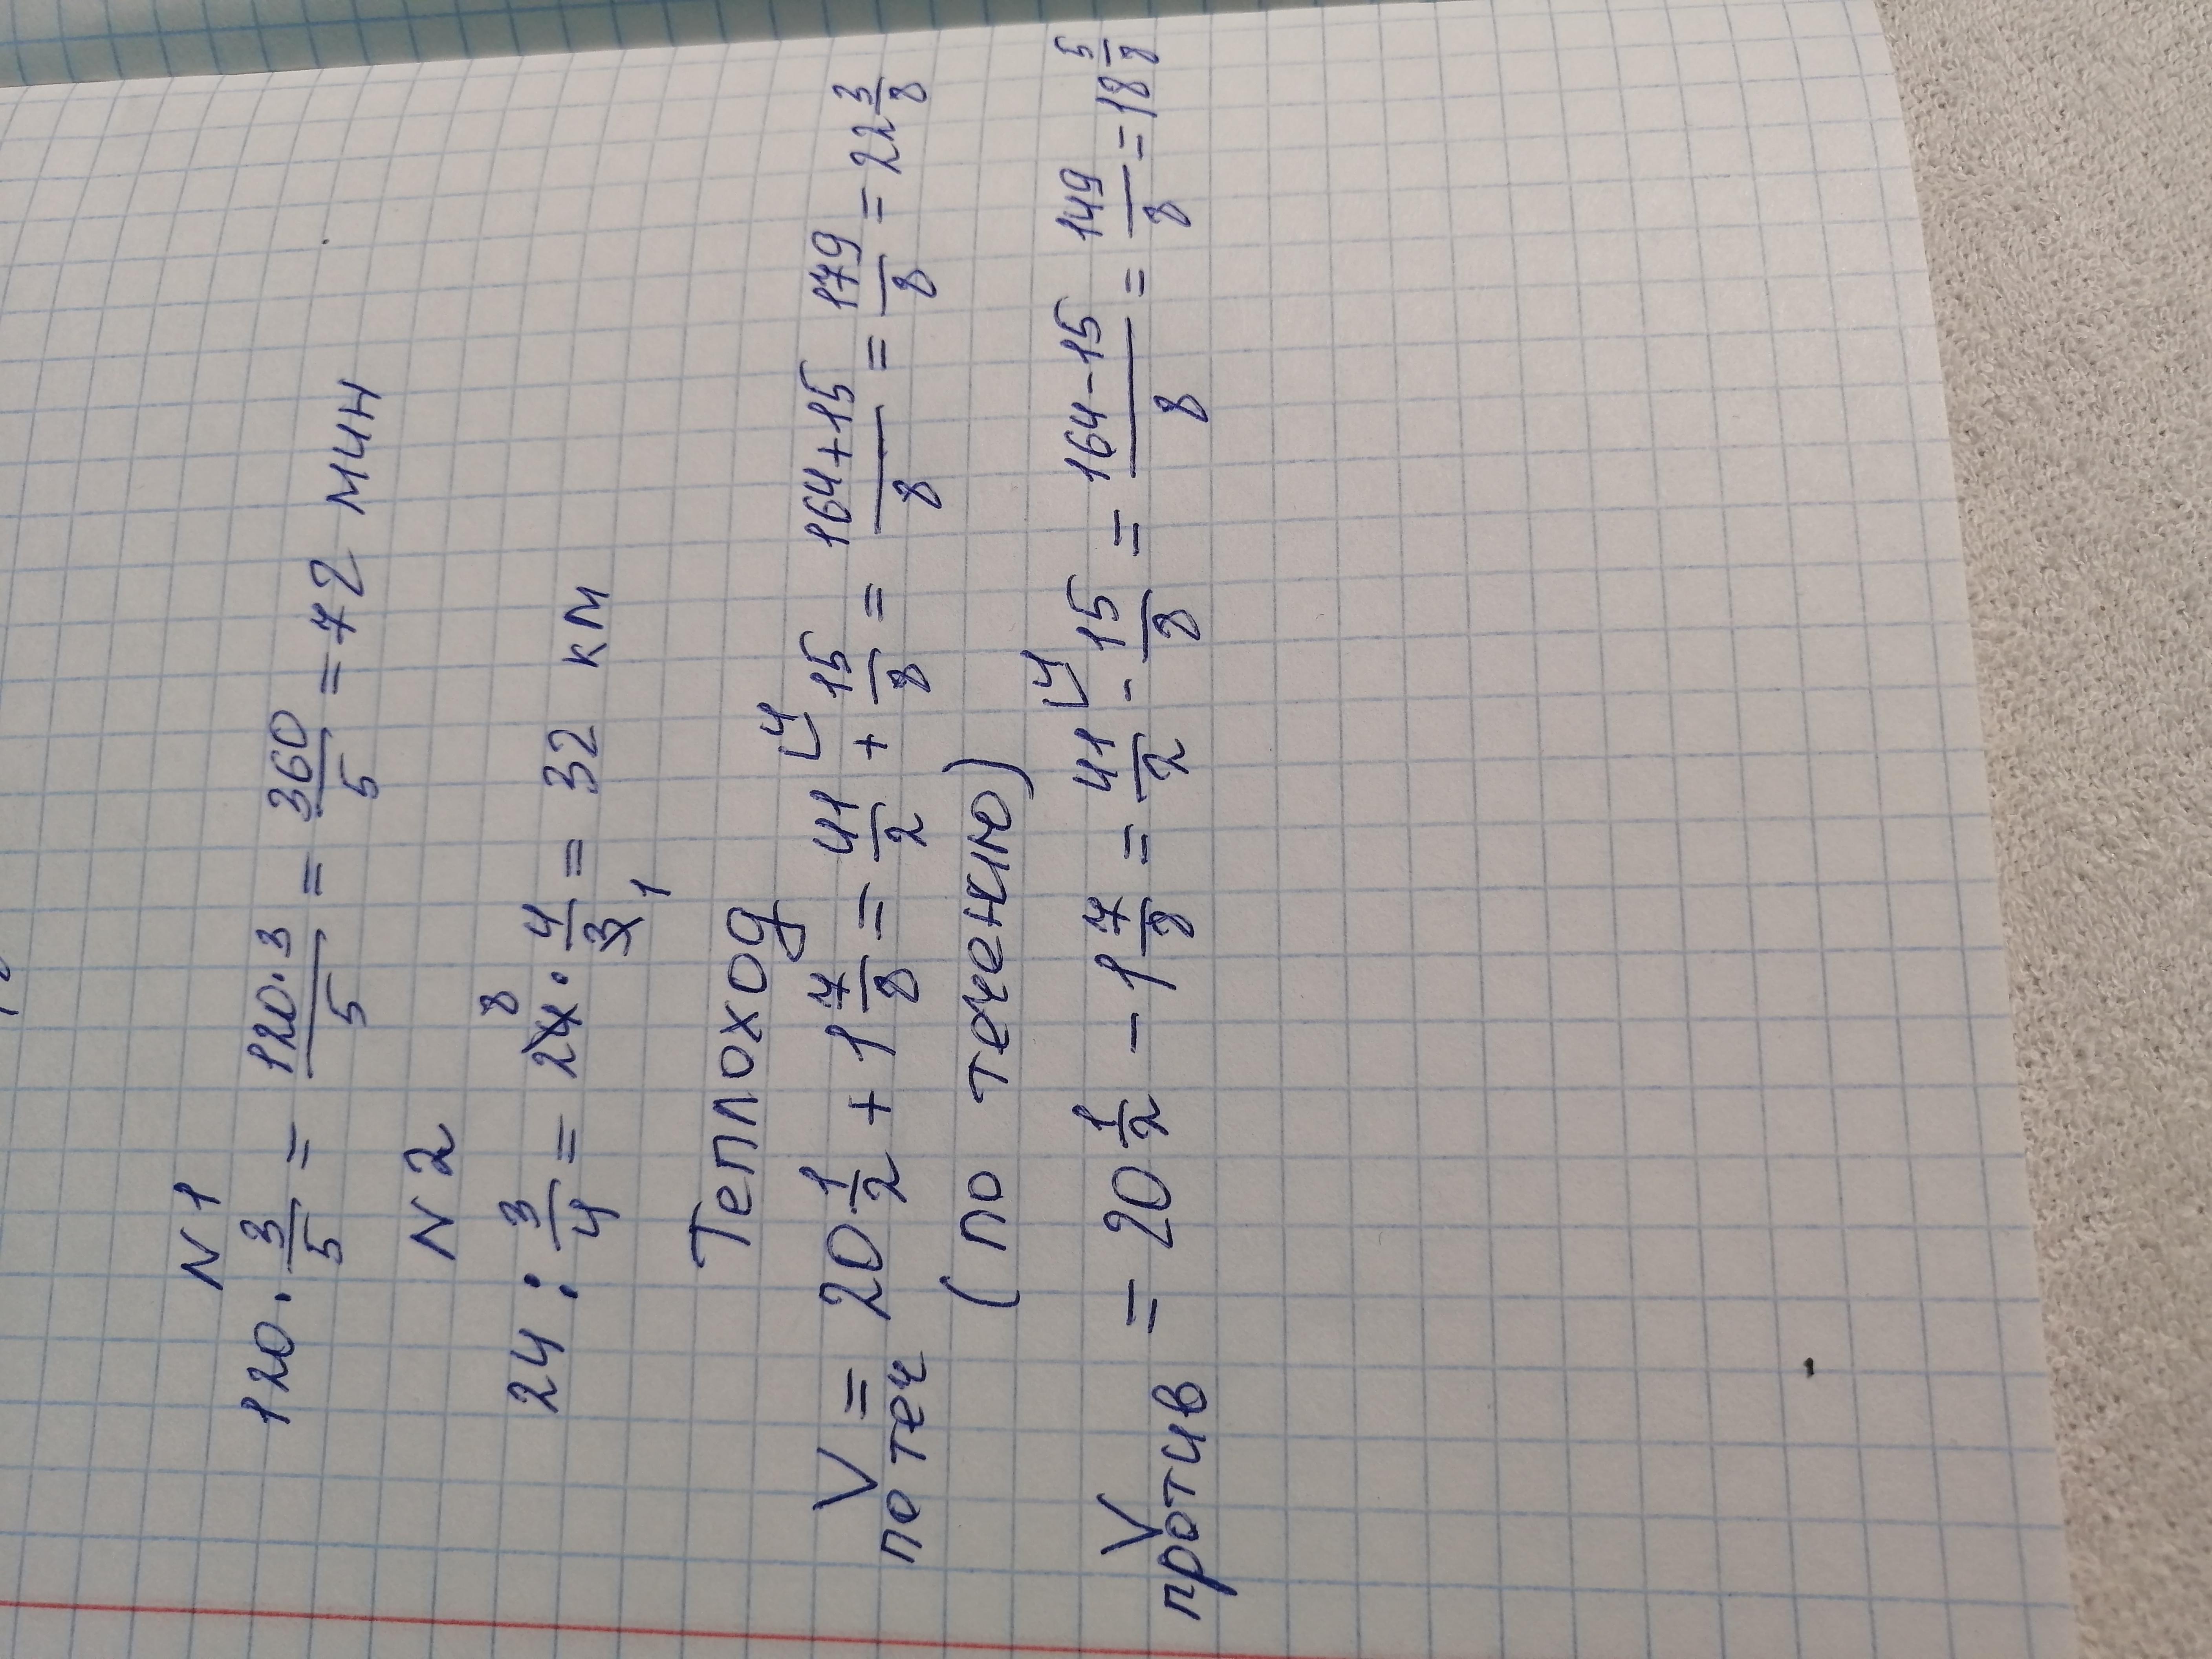 N 1
120 · 3/5 = 120·3/5 = 360/5 = 72 мин
N 2
24 : 3/4 = 24 8 · 4/3 1 = 32 км
Теплоход
V по теч = 20 1/2 + 1 7/8 = 41/2 4 + 15/8 = 164+15/8 = 179/8 = 22 3/8
(по течению)
V против = 20 1/2 - 1 7/8 = 41/2 4 - 15/8 = 164-15/8 = 149/8 = 18 5/8